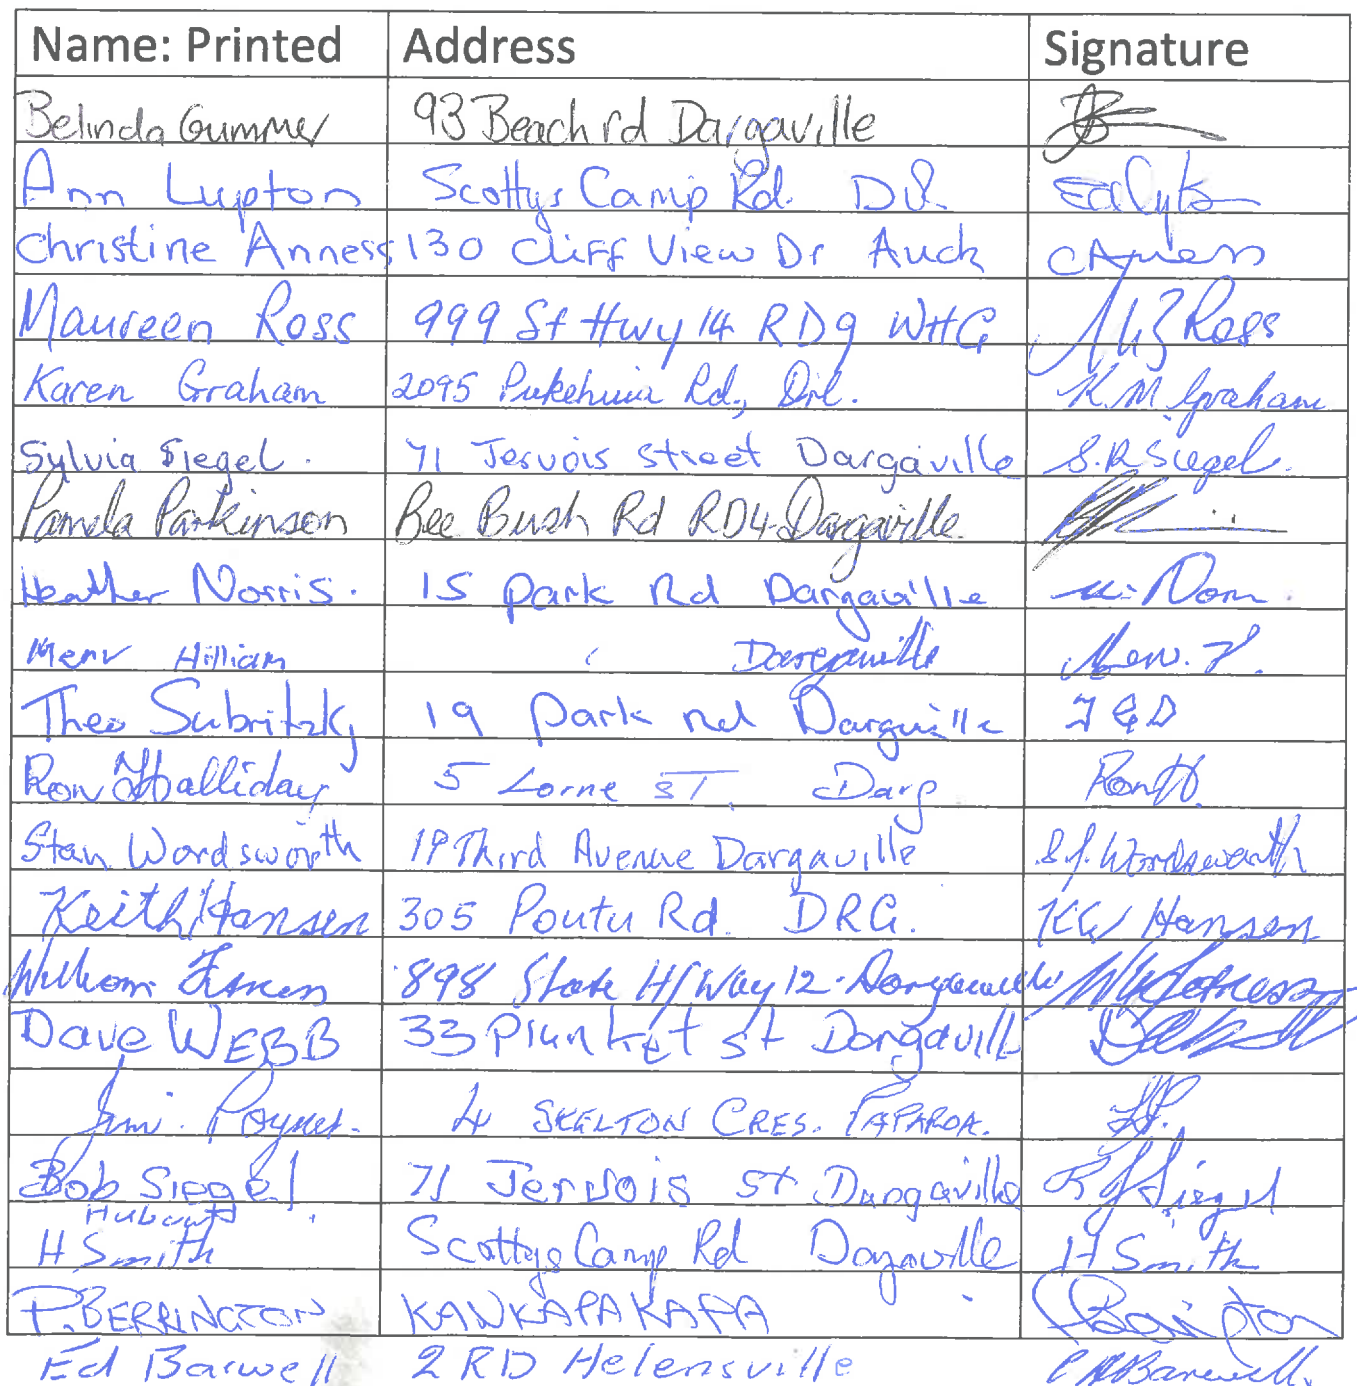 Name: Printed Address Signature
Belinda Gummer 93 Beach rd Dargaville
Ann Lupton Scottys Camp Rd. 
Christine Anness 130 Cliff View Dr Auck CAnness
Maureen Ross 999 St Hwy 14 RD9 WHG Ross
Karen Graham 2095 Pukehuia Rd., K.M Graham
Sylvia Siegel. 71 Jervois street Dargaville S.R Siegel.
Pamela Parkinson Bee Bush Rd RD4 Dargaville.
Heather Norris. 15 park Rd Dargaville
Merv Hilliam Dargaville
Theo Subritzky 19 park rd Dargaville
Ron Halliday 5 Lorne ST. Darg Ron H.
Stan Wordsworth 19 Third Avenue Dargaville S.J. Wordsworth
Keith Hansen 305 Poutu Rd. DRG. KW Hansen
William 898 State H/Way 12 Dargaville
Dave WEBB 33 Plunket st Dargaville
Jim. Poyner. 4 SKELTON CRES. PAPAROA.
Bob Siegel 71 Jervois st Dargaville Siegel
H Smith Scottys Camp Rd Dargaville H Smith
P. BERRINGTON KAUKAPAKAPA
Ed Barwell 2 RD Helensville Barwell.